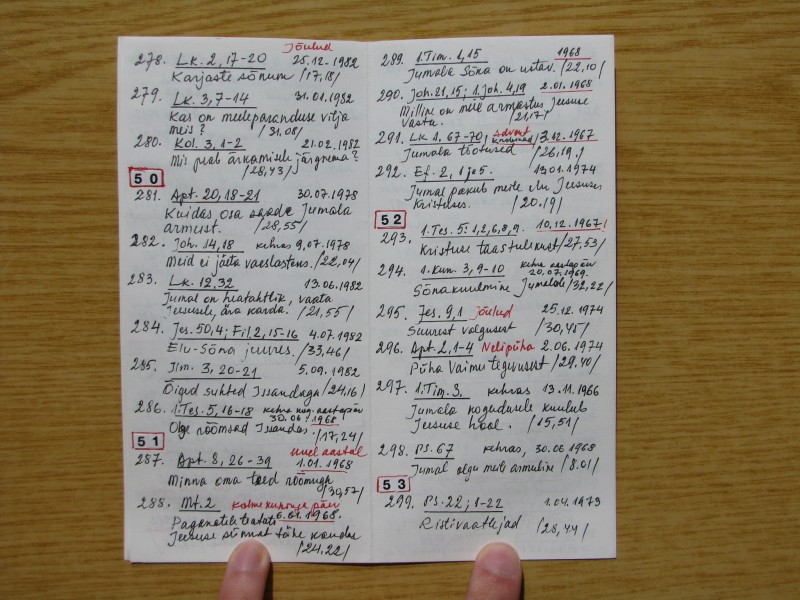 Jõulud
278. Lk. 2, 17-20 25.12.1982
Karjaste sõnum /17,18/
279. Lk. 3, 7-14 31.01.1982
Kas on meeleparanduse vilja
meis? /31,08/
280. Kol. 3, 1-2 21.02.1982
Mis peab ärkamisele järgnema?
/28,43/
50
281. Apt. 20, 18-21 30.07.1978
Kuidas osa saada Jumala
armust. /28,55/
282. Joh. 14,18 kehras 9.07.1978
Meid ei jäeta vaeslasteks. /22,04/
283. Lk. 12,32 13.06.1982
Jumal on heatahtlik, vaata
Jeesusele, ära karda. /21,55/
284. Jes. 50,4; Fil. 2, 15-16 4.07.1982
Elu-Sõna juures. /33,46/
285. Ilm. 3, 20-21 5.09.1982
Õiged suhted Issandaga /24,16/
286. 1.Tes. 5, 16-18 kehra kog. aastapäev
30.06.1968
Olge rõõmsad Issandas. /17,24/
51
uuel aastal
287. Apt. 8, 26-39 1.01.1968
Minna oma teed rõõmuga
/30,57/
288. Mt. 2 Kolmekuninga päev
Paganatele teatati 6.01.1968.
Jeesuse sünnist tähe kaudu
/24,22/
289. 1.Tim. 1,15 1968
Jumala Sõna on ustav. /22,10/
290. Joh. 21,15; 1.Joh. 4,19 2.01.1968
Milline on meie armastus Jeesuse
vastu. /21,17/
291. Lk. 1. 67-70 advent 3.12.1967
Jumala tõotused /26,19/
292. Ef. 2, 1 ja 5. 13.01.1974
Jumal pakub meile elu Jeesuses
Kristuses. /20,19/
52
293. 1.Tes. 5: 1,2,6,8,9. 10.12.1967!
Kristuse taastulekust /27,53/
294. 1.Kun. 3, 9-10 kehra aastapäev
20.07.1969.
Sõnakuulmine Jumalale /32,22/
295. Jes. 9,1 jõulud 25.12.1974
Suurest valgusest /30,45/
296. Apt. 2, 1-4 Nelipüha 2.06.1974
Püha Vaimu tegevusest /29,40/
297. 1.Tim. 3. kehras 13.11.1966
Jumala kogudusele kuulub
Jeesuse hool. /15,51/
298. Ps. 67 kehras, 30.06.1968
Jumal olgu meile armuline /8.01/
53
299. Ps. 22; 1-22 1.04.1973
Ristivaatlejad /28,44/